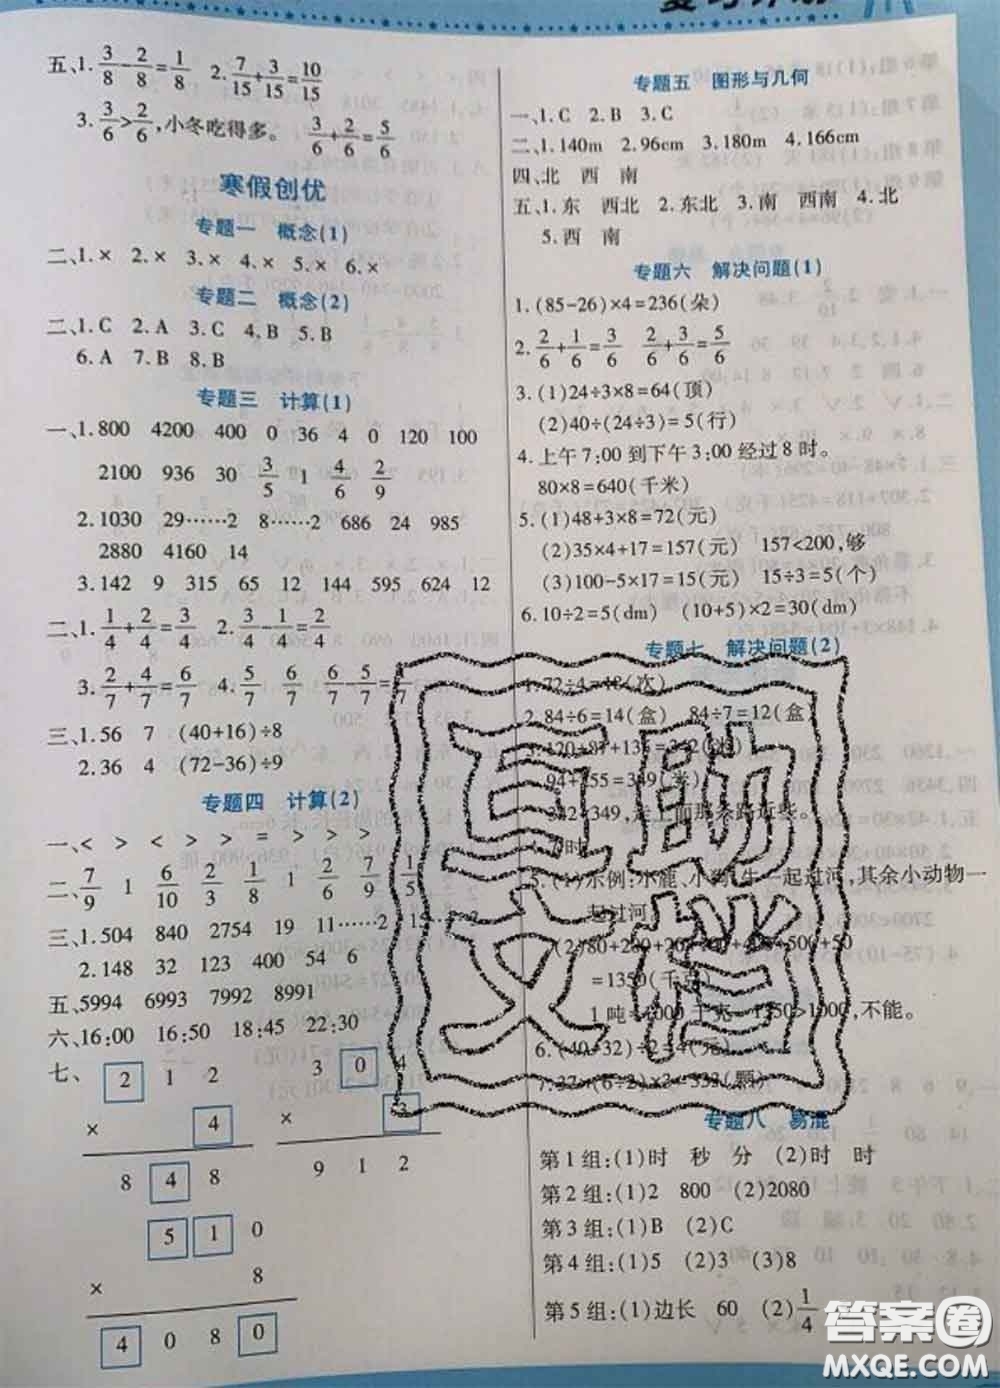 五、1. 3/8-2/8=1/8 2. 7/15+3/15=10/15
3. 3/6>2/6,小冬吃得多。 3/6+2/6=5/6
寒假创优
专题一 概念(1)
二、1.× 2.× 3.× 4.× 5.× 6.×
专题二 概念(2)
二、1.C 2.A 3.C 4.B 5.B
6.A 7.B 8.B
专题三 计算(1)
一、1.800 4200 400 0 36 4 0 120 100
2100 936 30 3/5 1 4/6 2/9
2.1030 29……2 8……2 686 24 985
2880 4160 14
3.142 9 315 65 12 144 595 624 12
二、1. 1/4+2/4=3/4 2. 3/4-1/4=2/4
3. 2/7+4/7=6/7 4. 5/7-1/7=4/7 6/7-5/7=1/7
三、1.56 7 (40+16)÷8
2.36 4 (72-36)÷9
专题四 计算(2)
一、< > < > > = > > >
二、7/9 1 6/10 2/3 8/8 1 2/6 7/9 1/5
三、1.504 840 2754 19 11……2
2.148 32 123 400 54 6
五、5994 6993 7992 8991
六、16:00 16:50 18:45 22:30
七、 2 1 2 3 0 4
× 4 × 3
8 4 8 9 1 2
5 1 0
× 8
4 0 8 0
专题五 图形与几何
一、1.C 2.B 3.C
二、1.140m 2.96cm 3.180m 4.166cm
四、北 西 南
五、1.东 西北 2.东北 3.南 西南 4.北
5.西 南
专题六 解决问题(1)
1.(85-26)×4=236(朵)
2. 2/6+1/6=3/6 2/6+3/6=5/6
3.(1)24÷3×8=64(顶)
(2)40÷(24÷3)=5(行)
4.上午7:00到下午3:00经过8时。
80×8=640(千米)
5.(1)48+3×8=72(元)
(2)35×4+17=157(元) 157<200,够
(3)100-5×17=15(元) 15÷3=5(个)
6.10÷2=5(dm) (10+5)×2=30(dm)
专题七 解决问题(2)
1.72÷4=18(次)
2.84÷6=14(盒) 84÷7=12(盒)
3.120+87+135=342(米)
94+255=349(米)
342<349,走上面那条路近些。
5.(1)示例:小鹿、小狗、牛一起过河,其余小动物一
起过河。
(2)80+200+20
+500+50
=1350(千克)
1吨=1000千克 1350>1000,不能。
6.(40-32)÷2=4(元)
7.37×(6÷2)×3=333(颗)
专题八 易混
第1组:(1)时 秒 分 (2)时 时
第2组:(1)2 800 (2)2080
第3组:(1)B (2)C
第4组:(1)5 (2)3 (3)8
第5组:(1)边长 60 (2)1/4
互助文档
答案圈
MXQE.COM